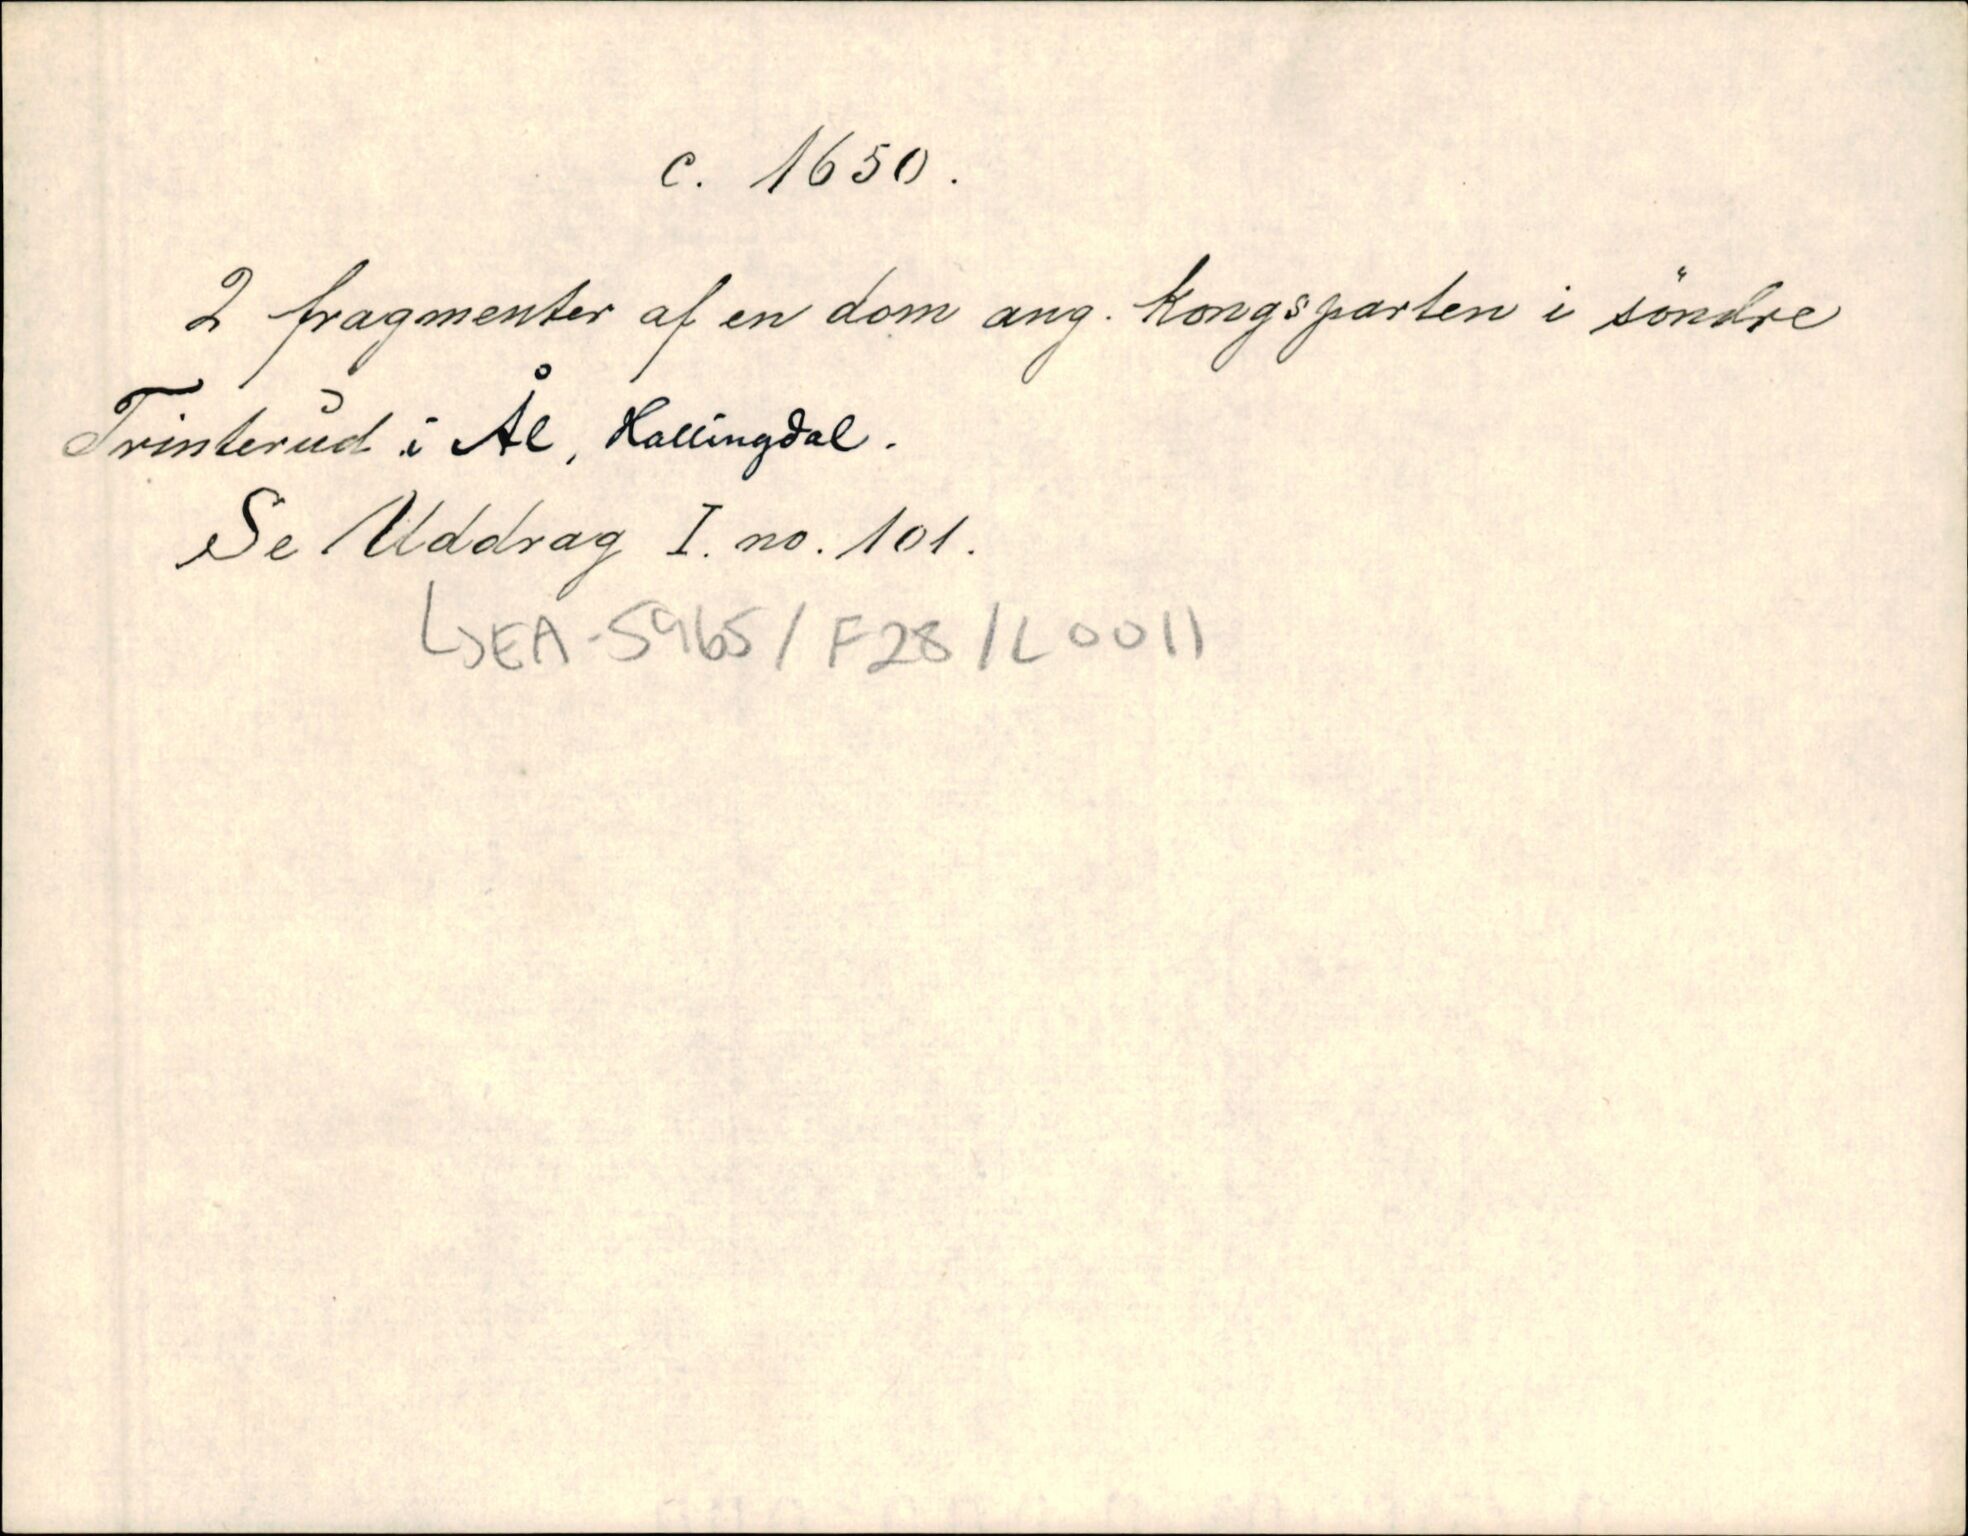 c. 1650.
2 fragmenter af en dom ang. kongsparten i söndre
Trinterud i Ål, Hallingdal.
Se Uddrag I. no. 101.
↳ EA-5965/F28/L0011